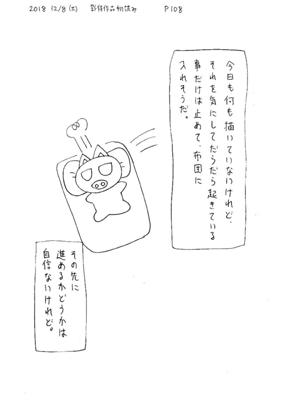 2018 12/8(土)
P108
今日も何も描いていないけれど、
それを気にしてだらだら起きている
事だけは止めて、布団に
入れそうだ。
その先に
進めるかどうかは
自信ないけれど。